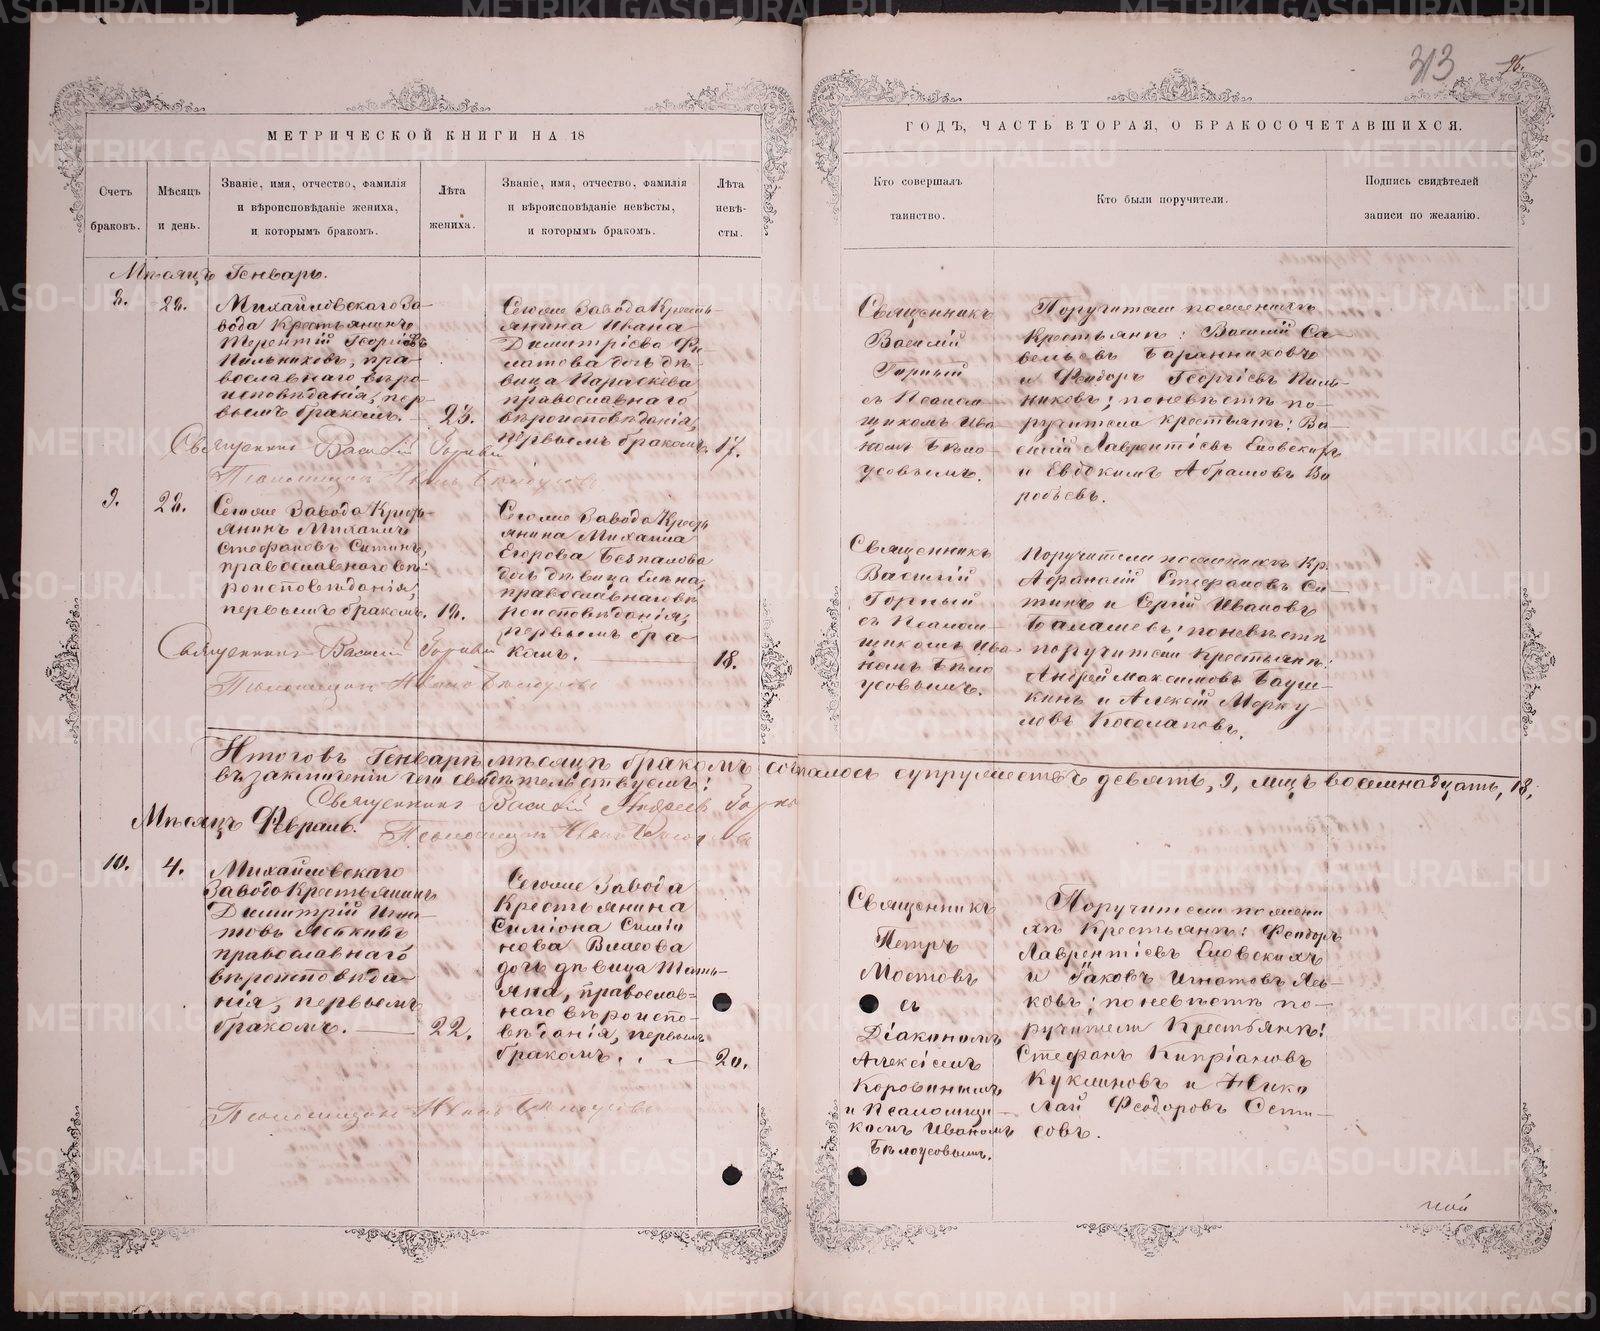 313
96.
МЕТРИЧЕСКОЙ КНИГИ НА 18
Счетъ браковъ.
Мѣсяцъ и день.
Званіе, имя, отчество, фамилія и вѣроисповѣданіе жениха, и которымъ бракомъ.
Лѣта жениха.
Званіе, имя, отчество, фамилія и вѣроисповѣданіе невѣсты, и которымъ бракомъ.
Лѣта невѣ-
сты.
ГОДЪ, ЧАСТЬ ВТОРАЯ, О БРАКОСОЧЕТАВШИХСЯ.
Кто совершалъ таинство.
Кто были поручители.
Подпись свидѣтелей записи по желанію.
Мѣсяцъ Генварь.
8.
22.
Михайловскаго За-
вода Крестьянинъ
Терентій Георгіевъ
Пильниковъ, пра-
вославнаго вѣро-
исповѣданія, пер-
вымъ бракомъ.
23.
Сегоже Завода Кресть-
янина Ивана
Димитріева Фи
латова дочь дѣ-
вица Параскева
православнаго
вѣроисповѣданія,
первымъ бракомъ.
17.
Священникъ
Василій
Горный
съ Псалом
щикомъ Ива
номъ Бѣло
усовымъ.
Поручители по женихѣ
Крестьяне: Василій Са-
вельевъ Баранниковъ
и Феодоръ Георгіевъ Пиль-
никовъ; по невѣстѣ по-
ручители крестьяне: Ва-
силій Лаврентіевъ Еловскихъ
и Евдокимъ Абрамовъ Во
робьевъ.
Священникъ Василій Горный
Псаломщикъ Иванъ Бѣлоусовъ
9.
22.
Сегоже Завода Кресть-
янинъ Михаилъ
Стефановъ Ситинъ,
православнаго вѣ-
роисповѣданія,
первымъ бракомъ.
18.
Сегоже Завода Кресть
янина Михаила
Егорова Безпалова
дочь дѣвица Елена,
православнаго вѣ
роисповѣданія,
первымъ бра
комъ.
18.
Священникъ
Василій
Горный
съ Псалом-
щикомъ Ива
номъ Бѣло
усовымъ.
Поручители по женихѣ Кр.
Афанасій Стефановъ Си-
тинъ и Сергій Ивановъ
Балашевъ; по невѣстѣ
поручители Крестьяне:
Андрей Максимовъ Бауш-
кинъ и Алексій Мерку-
ловъ Косолаповъ.
Священникъ Василій Горный
Псаломщикъ Иванъ Бѣлоусовъ
Итого въ Генварѣ мѣсяцѣ бракомъ сочталось супружествъ девять, 9, лицъ восемнадцать, 18,
въ заключеніи чего свидѣтельствуемъ:
Священникъ Василій Андреевъ Горный
Псаломщикъ Иванъ Бѣлоусовъ
Мѣсяцъ Февраль.
10.
4.
Михайловскаго
Завода Крестьянинъ
Димитрій Игна
товъ Ясъковъ
православнаго
вѣроисповѣда-
нія, первымъ
бракомъ.
22.
Сегоже Завода
Крестьянина
Симіона Симіо
нова Власова
дочь дѣвица Тать-
яна, православ-
наго вѣроиспо-
вѣданія, первымъ
бракомъ.
20.
Священникъ
Петръ
Мостовъ
съ
Діакономъ
Алексіемъ
Коровинымъ
и Псаломщи-
комъ Иваномъ
Бѣлоусовымъ.
Поручители по жени
хѣ Крестьяне: Феодоръ
Лаврентіевъ Еловскихъ
и Іаковъ Игнатовъ Ясь-
ковъ; по невѣстѣ по-
ручители Крестьяне:
Стефанъ Кипріановъ
Куклиновъ и Нико
лай Феодоровъ Осети-
совъ.
Псаломщикъ Иванъ Бѣлоусовъ